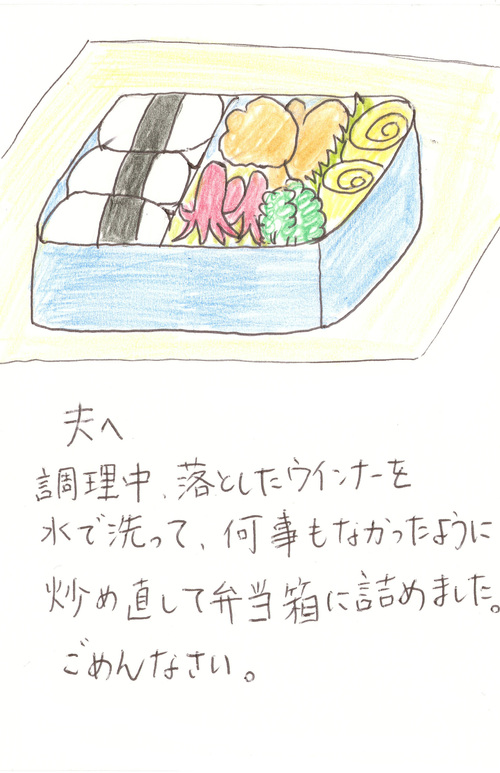 夫へ
調理中、落としたウインナーを
水で洗って、何事もなかったように
炒め直して弁当箱に詰めました。
ごめんなさい。